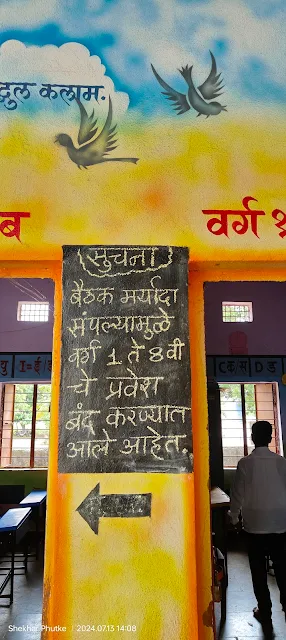 दुल कलाम.
ब
वर्ग १
सुचना
बैठक मर्यादा
संपल्यामुळे
वर्ग 1 ते 8 वी
चे प्रवेश
बंद करण्यात
आले आहेत.
Shekhar Phutke | 2024.07.13 14:08